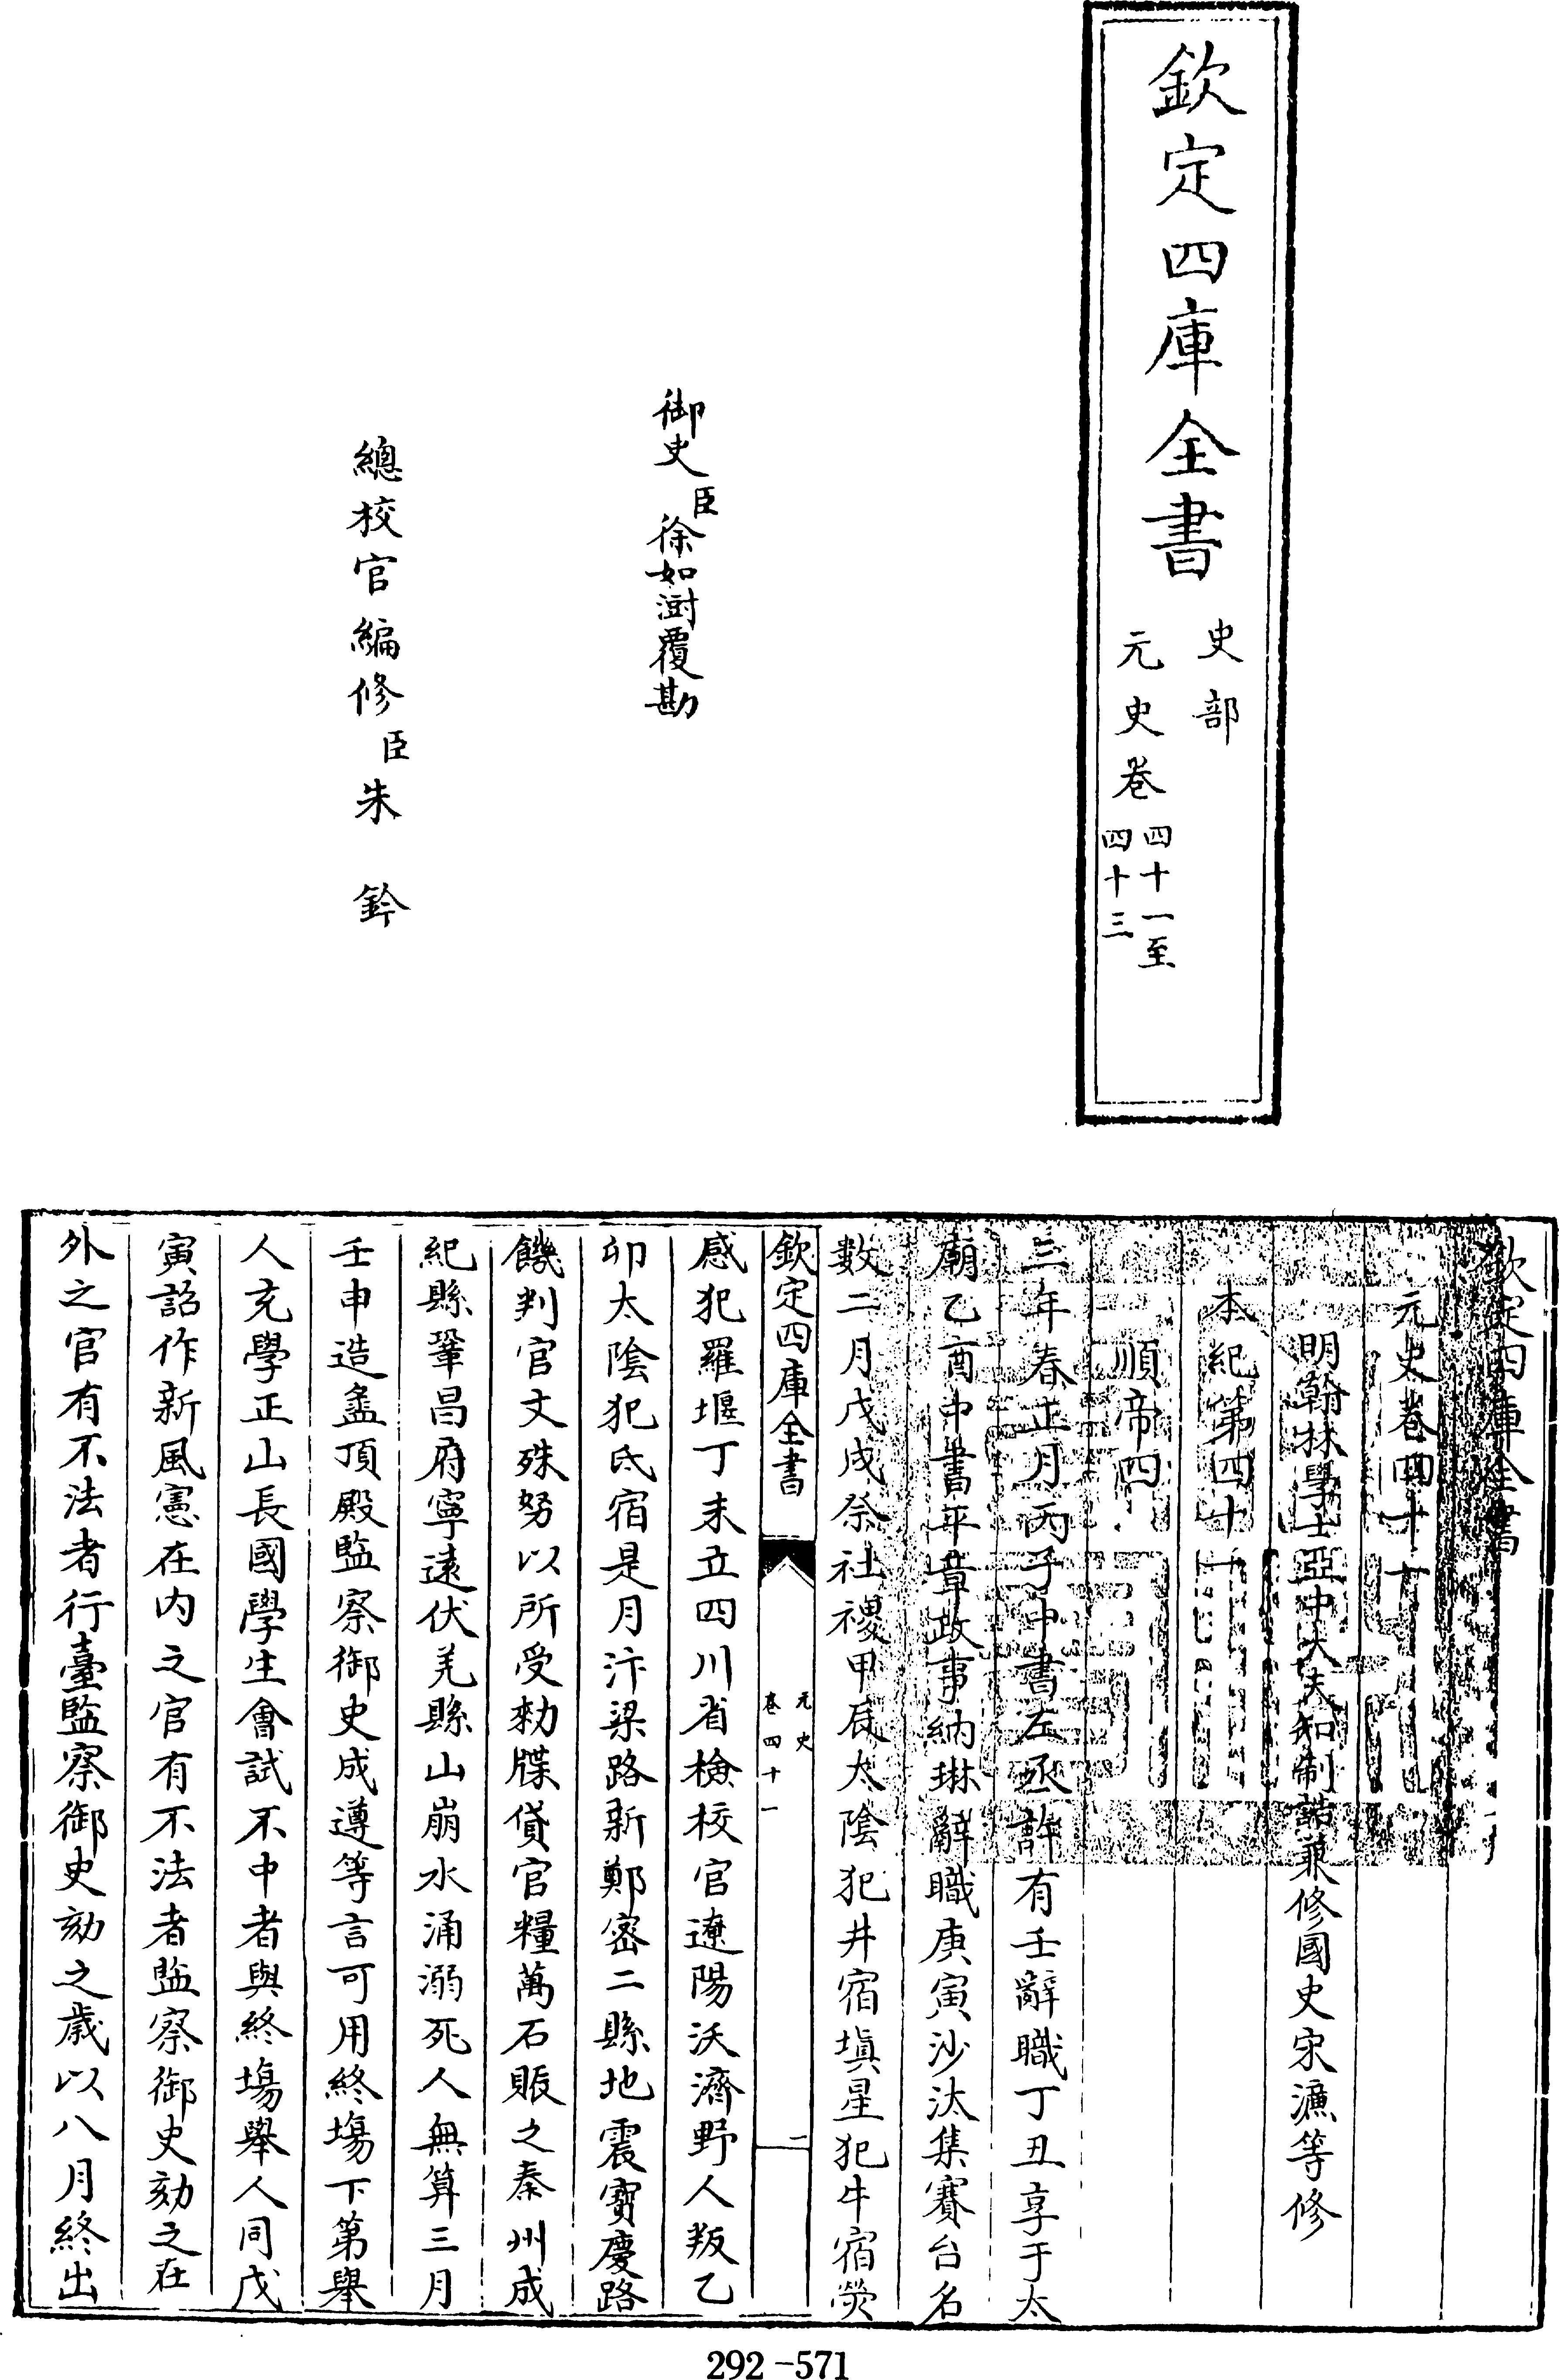 欽定四庫全書
史部
元史卷
四十一至
四十三
御史臣徐如澍覆勘
總校官編修臣朱鈐
欽定四庫全書
元史卷四十一
明翰林學士亞中大夫知制誥兼修國史宋濂等修
本紀第四十一
順帝四
三年春正月丙子中書左丞許有壬辭職丁丑享于太
廟乙酉中書平章政事納琳辭職庚寅沙汰集賽台名
數二月戊戌祭社稷甲辰太陰犯井宿塡星犯牛宿熒
欽定四庫全書
元史
卷四十一
一
惑犯羅堰丁未立四川省檢校官遼陽沃濟野人叛乙
卯太陰犯氐宿是月汴梁路新鄭密二縣地震寶慶路
饑判官文殊努以所受勑牒貸官糧萬石賑之秦州成
紀縣鞏昌府寧遠伏羌縣山崩水涌溺死人無算三月
壬申造盝頂殿監察御史成遵等言可用終塲下第舉
人充學正山長國學生會試不中者與終塲舉人同戊
寅詔作新風憲在內之官有不法者監察御史劾之在
外之官有不法者行臺監察御史劾之歲以八月終出
292-571